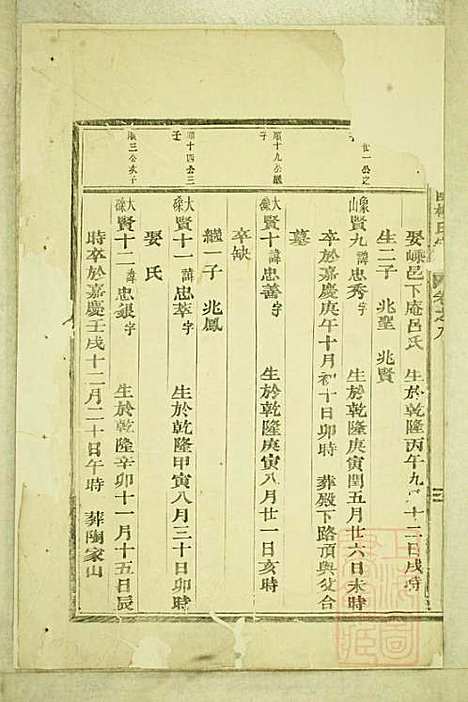 卷之九
三
娶嵊邑下庵呂氏 生於乾隆丙午九月十二日戌時
生二子 兆聖 兆賢
廿一公之
象山賢九諱忠秀字 生於乾隆庚寅閏五月廿六日未時
卒於嘉慶庚午十月初十日卯時 葬殿下路頂與父合
墓
順十九公繼子
大磢賢十諱忠善字 生於乾隆庚寅八月廿一日亥時
卒缺
繼一子 兆鳳
順十四公三子
大磢賢十一諱忠萃字 生於乾隆甲寅八月三十日卯時
娶氏
順三公次子
大磢賢十二諱忠銀字 生於乾隆辛卯十一月十五日辰
時卒於嘉慶壬戌十二月二十日午時 葬陶家山